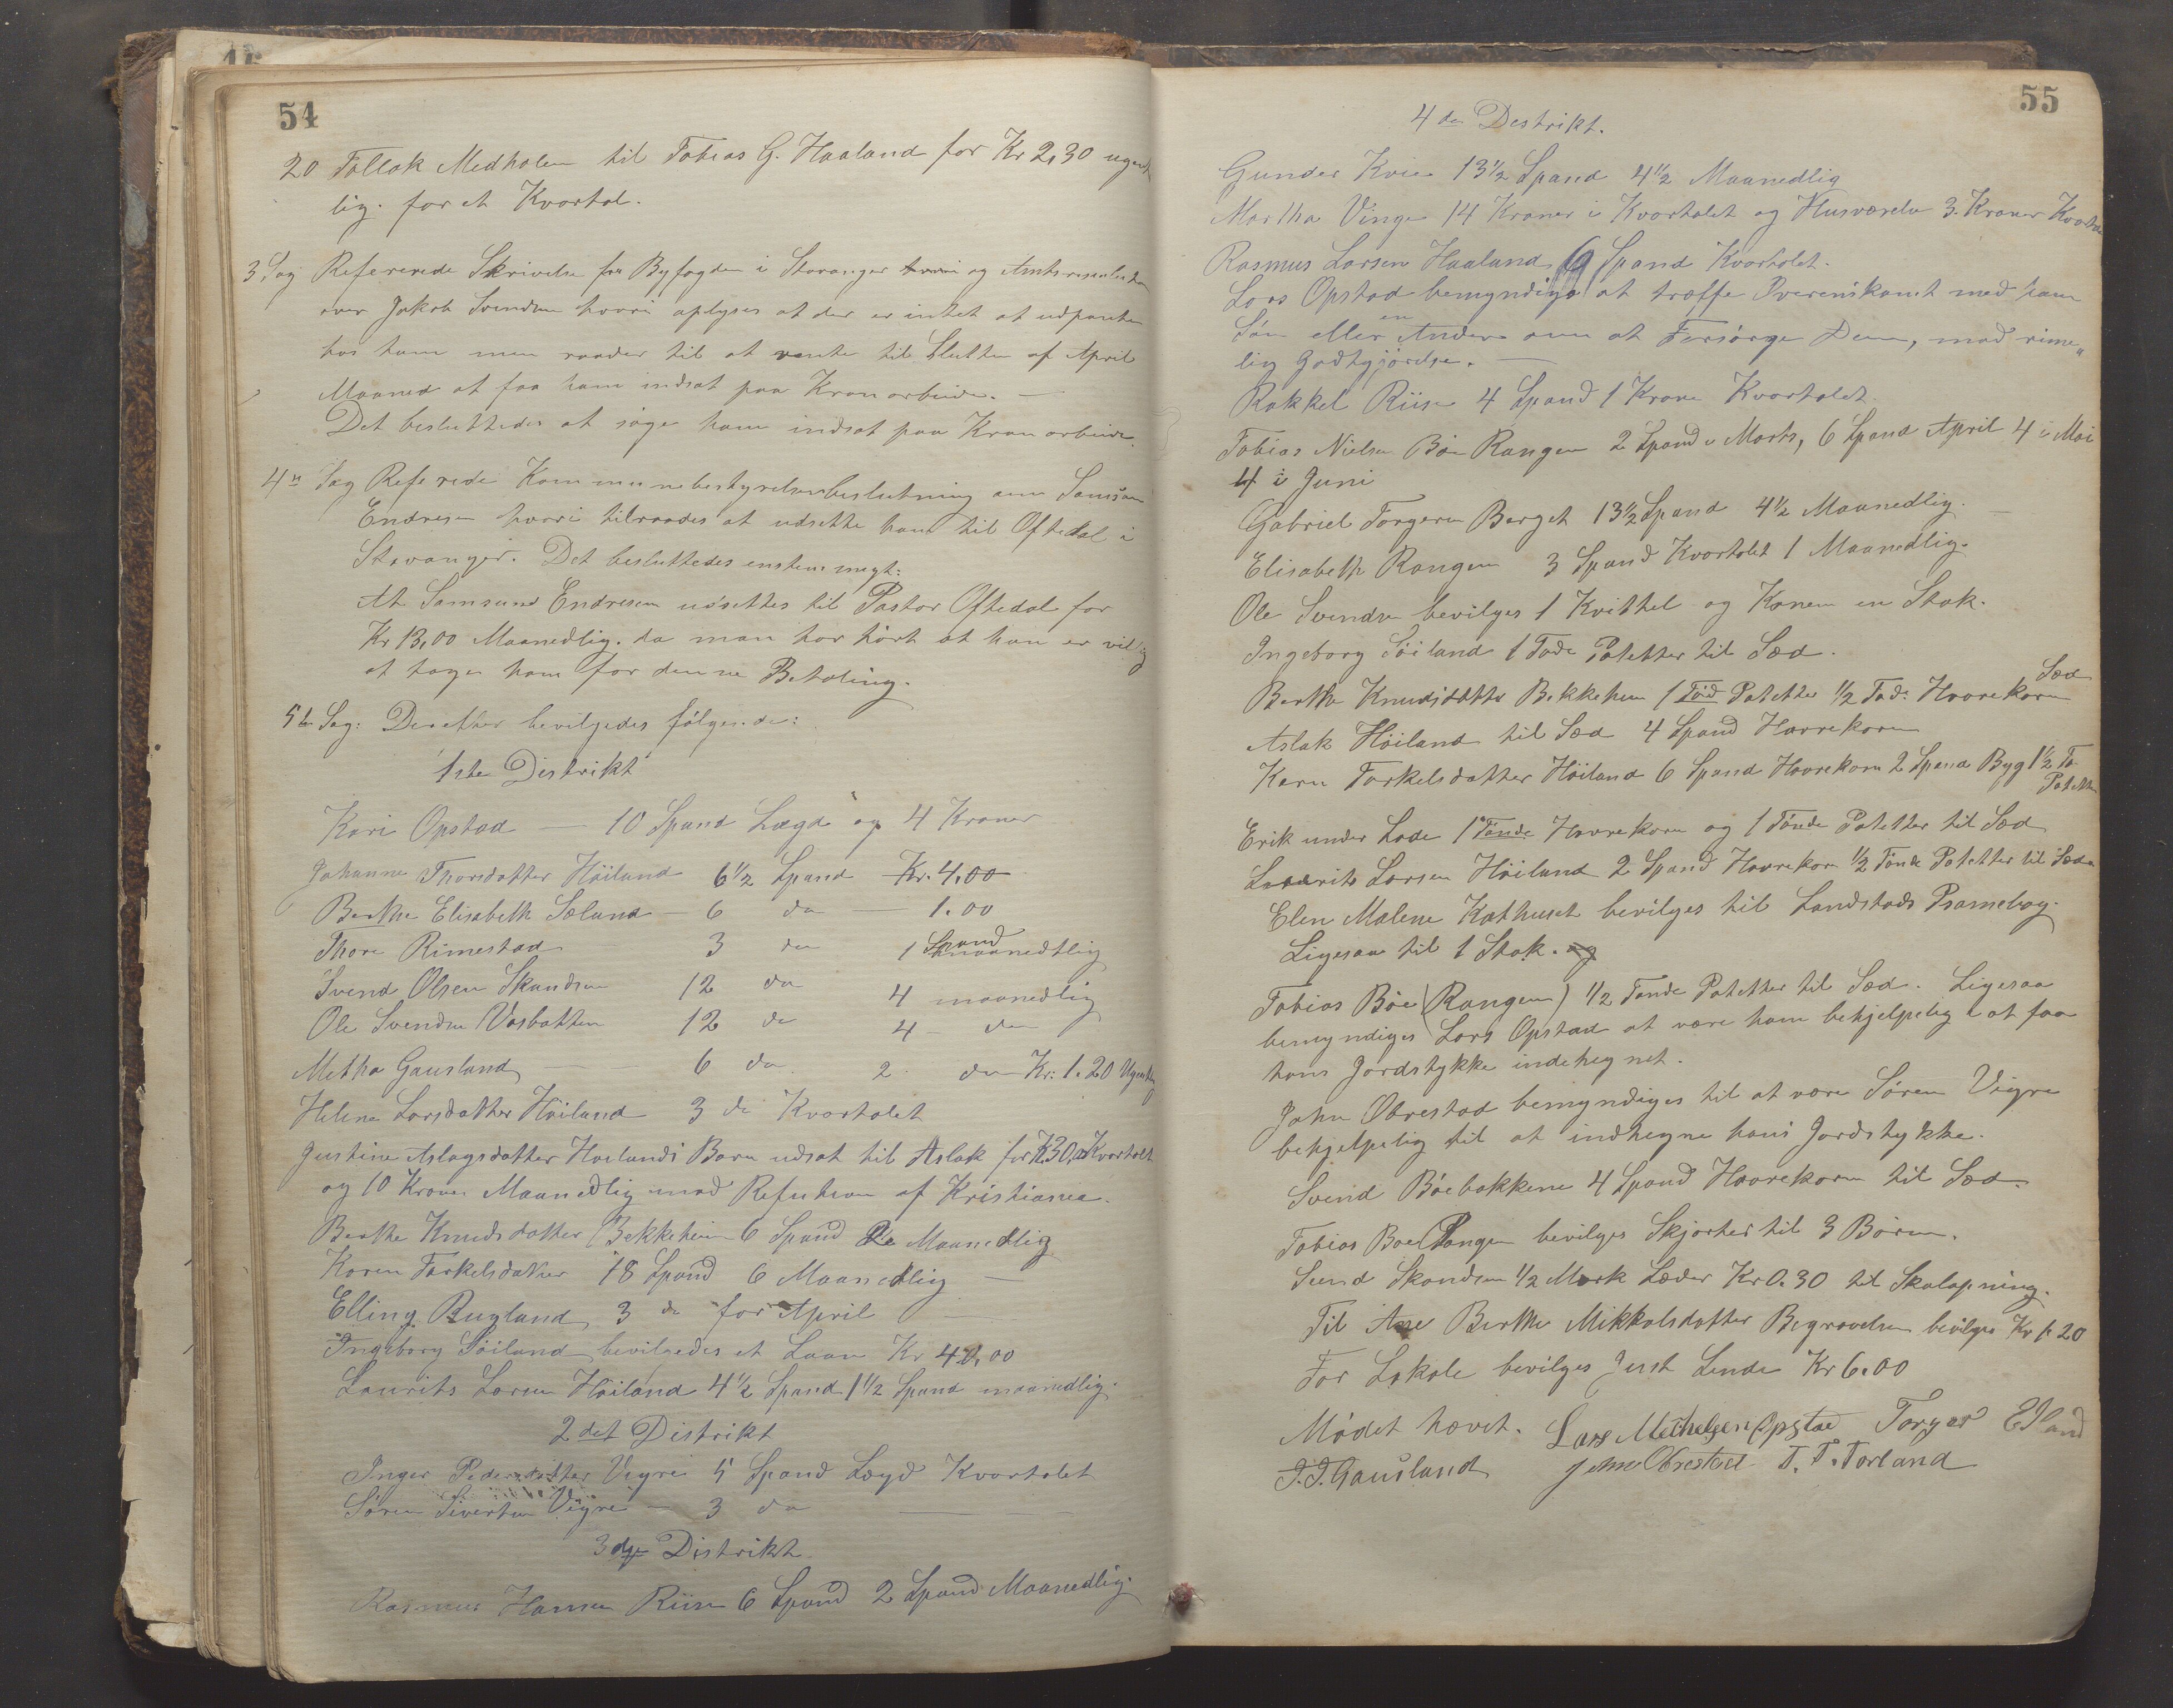 54
20 Tollak Medholen til Tobias G. Haaland for Kr 2,30 ugent
lig. for et Kvartal.
3 Sag Refererede Skrivelse fra Byfogden i Stavanger og
over Jakob Svendsen hvori oplyses at der er intet at udpante
hos ham men raader til at vente til Slutten af April
Maaned at faa ham indsat paa Kronarbeide. —
Det besluttedes at söge ham indsat paa Kronarbeide.
4n Sag Refererede Kommunebestyrelsesbeslutning om Samson
Endresen hvori tilraades at udsette ham til Oftedal i
Stavanger. Det besluttedes enstemmigt:
At Samsund Endresen udsettes til Pastor Oftedal for
Kr 13,00 Maanedlig. da man har hört at han er villig
at tage ham for denne Betaling.
5te Sag: Derefter bevilgedes fölgende:
1ste Distrikt
Kari Opstad — 10 Spand Lægd og 4 Kroner
Johanne Thorsdatter Höiland 6½ Spand Kr. 4.00
Berthe Elisabeth Sæland — 6 do — 1.00
Thore Rimestad 3 do 1 Spand maanedtlig
Svend Olsen Skandsen 12 do 4 maanedlig
Ole Svendsen Vasbotten 12 do 4 — do
Metha Gausland — 6 do 2 do Kr: 1.20 Ugentlig
Helene Larsdatter Höiland 3 do Kvartalet
Justine Aslagsdatter Hoelands Barn udsat til Aslak for K 30,00 Kvartalet
og 10 Kroner Maanedlig med Refution af Kristiania.
Berthe Knudsdatter Bekkeheien 6 Spand 2 Maanedlig
Karen Torkelsdatter 18 Spand 6 Maanedlig —
Elling Rugland 3 do for April
Ingeborg Söiland bevilgedes et Laan Kr 40,00
Laurits Larsen Höiland 4½ Spand 1½ Spand maanedlig.
2det Distrikt
Inger Pedersdatter Vigre 5 Spand Lægd Kvartalet
Sören Sivertsen Vigre — 3 do
3dje Distrikt
Rasmus Hansen Riise 6 Spand 2 Spand Maanedlig.
55
4de Destrikt.
Gunder Kvie 13½ Spand 4½ Maanedlig
Martha Vinge 14 Kroner i Kvartalet og Husværelse 3. Kroner Kvartal
Rasmus Larsen Haaland 6 Spand Kvartalet.
Lars Opstad bemyndiges at træffe Overenskomst med hans
Sön eller en Anden om at Forsörge Dem, mod rime„
lig Godtgjörelse. —
Rakkel Riise 4 Spand 1 Krone Kvartalet.
Tobias Nielsen Böe Rangen 2 Spand i Marts, 6 Spand April 4 i Mai
4 i Juni
Gabriel Torgersen Berget 13½ Spand 4½ Maanedlig. —
Elisabeth Rangen 3 Spand Kvartalet 1 Maanedlig.
Ole Svendsen bevilges 1 Kvittel og Konen en Stak.
Ingeborg Söiland 1 Töde Potetter til Sæd.
Berthe Knudsdatter Bekkeheien 1 Töd Potetter ½ Tød: Havrekorn Sæd
Aslak Höiland til Sæd 4 Spand Havrekorn
Karn Torkelsdatter Höiland 6 Spand Havrekorn 2 Spand Byg 1½ Tö. Potetter
Erik under Lode 1 Tönde Havrekorn og 1 Tönde Potetter til Sæd
Laurits Larsen Höiland 2 Spand Havrekorn ½ Tönde Potetter til Sæd
Elen Malene Kathuset bevilges til Landstads Psamebog.
Ligesaa til 1 Stak. og
Tobias Böe (Rangen) ½ Tønde Potetter til Sæd. Ligesaa
bemyndiges Lars Opstad at være ham behjelpelig i at faa
hans Jordstykke indehegnet.
John Obrestad bemyndiges til at være Sören Vigre
behjelpelig til at indhegne hans Jordstykke.
Svend Böebakkene 4 Spand Havrekorn til Sæd.
Tobias Boe Rangen bevilges Skjorter til 3 Börn.
Svend Skandsen ½ Mark Læder Kr 0.30 til Skolapning.
Til Ane Berthe Mikkalsdatter Begravelse bevilges Kr 1.20
For Lokale bevilges Just Lende Kr 6.00
Mödet hævet. Lars Michelsen Opstad Torger Eland
J.J. Gausland John Obrestad T. T. Torland